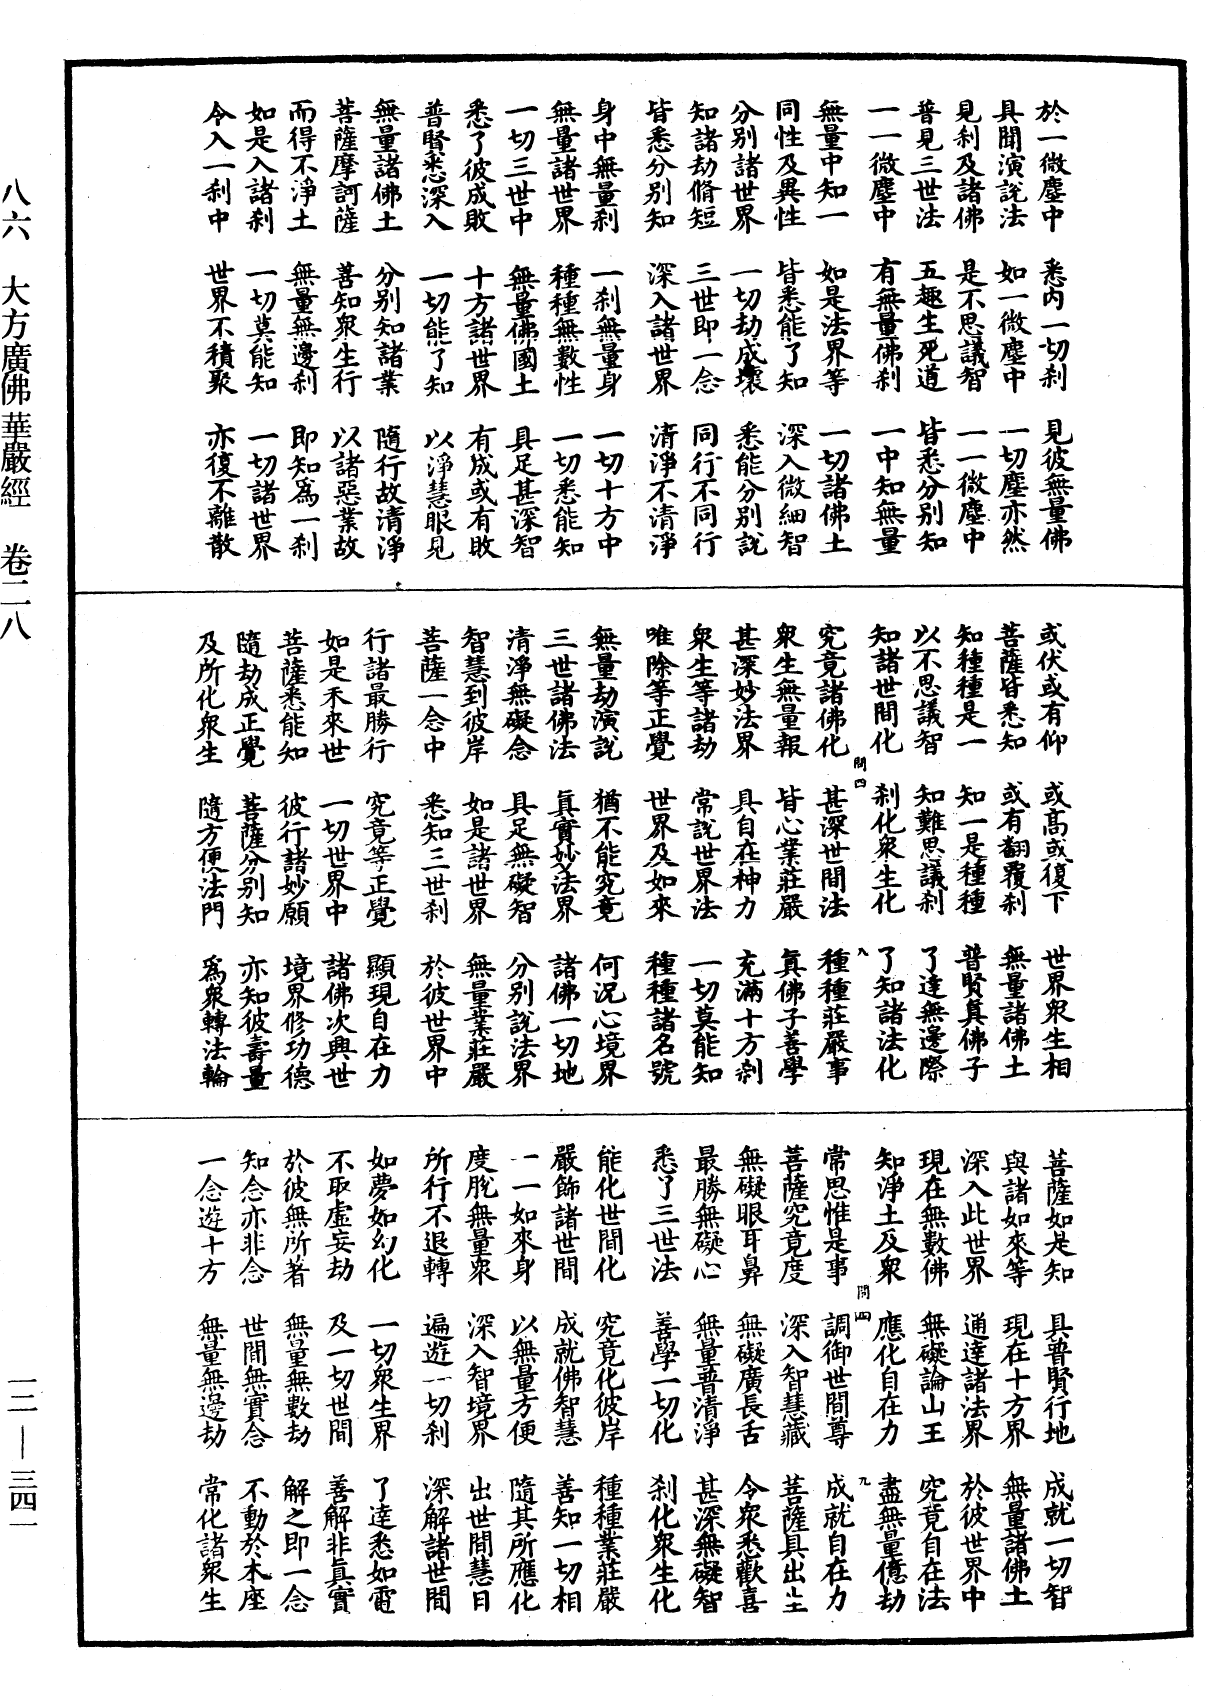 於一微塵中 悉内一切刹 見彼無量佛
具聞演説法 如一微塵中 一切塵亦然
見刹及諸佛 是不思議智 一一微塵中
普見三世法 五趣生死道 皆悉分别知
一一微塵中 有無量佛刹 一中知無量
無量中知一 如是法界等 一切諸佛土
同性及異性 皆悉能了知 深入微細智
分别諸世界 一切劫成壞 悉能分别説
知諸劫脩短 三世即一念 同行不同行
皆悉分别知 深入諸世界 清淨不清淨
身中無量刹 一刹無量身 一切十方中
無量諸世界 種種無數性 一切悉能知
一切三世中 無量佛國土 具足甚深智
悉了彼成敗 十方諸世界 有成或有敗
普賢悉深入 一切能了知 以淨慧眼見
無量諸佛土 分别知諸業 隨行故清淨
菩薩摩訶薩 善知衆生行 以諸惡業故
而得不淨土 無量無邊刹 即知爲一刹
如是入諸刹 一切莫能知 一切諸世界
令入一刹中 世界不積聚 亦復不離散
或伏或有仰 或高或復下 世界衆生相
菩薩皆悉知 或有翻覆刹 無量諸佛土
知種種是一 知一是種種 普賢真佛子
以不思議智 知難思議刹 了達無邊際
知諸世間化 刹化衆生化 了知諸法化
究竟諸佛化 甚深世間法 種種莊嚴事
衆生無量報 皆心業莊嚴 真佛子善學
甚深妙法界 具自在神力 充滿十方刹
衆生等諸劫 常説世界法 一切莫能知
唯除等正覺 世界及如來 種種諸名號
無量劫演説 猶不能究竟 何況心境界
三世諸佛法 真實妙法界 諸佛一切地
清淨無礙念 具足無礙智 分别説法界
智慧到彼岸 如是諸世界 無量業莊嚴
菩薩一念中 悉知三世刹 於彼世界中
行諸最勝行 究竟等正覺 顯現自在力
如是未來世 一切世界中 諸佛次興世
菩薩悉能知 彼行諸妙願 境界修功德
隨劫成正覺 菩薩分别知 亦知彼壽量
及所化衆生 隨方便法門 爲衆轉法輪
菩薩如是知 具普賢行地 成就一切智
與諸如來等 現在十方界 無量諸佛土
深入此世界 通達諸法界 於彼世界中
現在無數佛 無礙論山王 究竟自在法
知淨土及衆 應化自在力 盡無量億劫
常思惟是事 調御世間尊 成就自在力
菩薩究竟度 深入智慧藏 菩薩具出生
無礙眼耳鼻 無礙廣長舌 令衆悉歡喜
最勝無礙心 無量普清淨 甚深無礙智
悉了三世法 善學一切化 刹化衆生化
能化世間化 究竟化彼岸 種種業莊嚴
嚴飾諸世間 成就佛智慧 善知一切相
一一如來身 以無量方便 隨其所應化
度脱無量衆 深入智境界 出世間慧日
所行不退轉 遍遊一切刹 深解諸世間
如夢如幻化 一切衆生界 了達悉如電
不取虚妄劫 及一切世間 善解非真實
於彼無所著 無量無數劫 解之即一念
知念亦非念 世間無實念 不動於本座
一念遊十方 無量無邊劫 常化諸衆生
問四 八
問四 九
八六 大方廣佛華嚴經 卷二八
一二—三四一